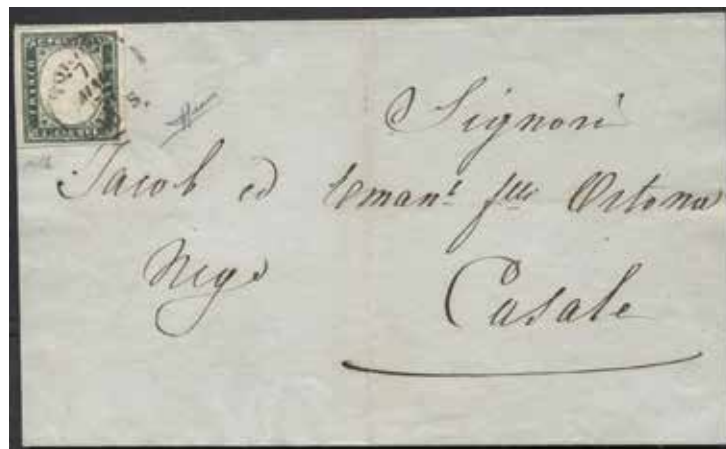 Signori
Jacob ed Eman.l f.lli Ortona
Neg.ti
Casale